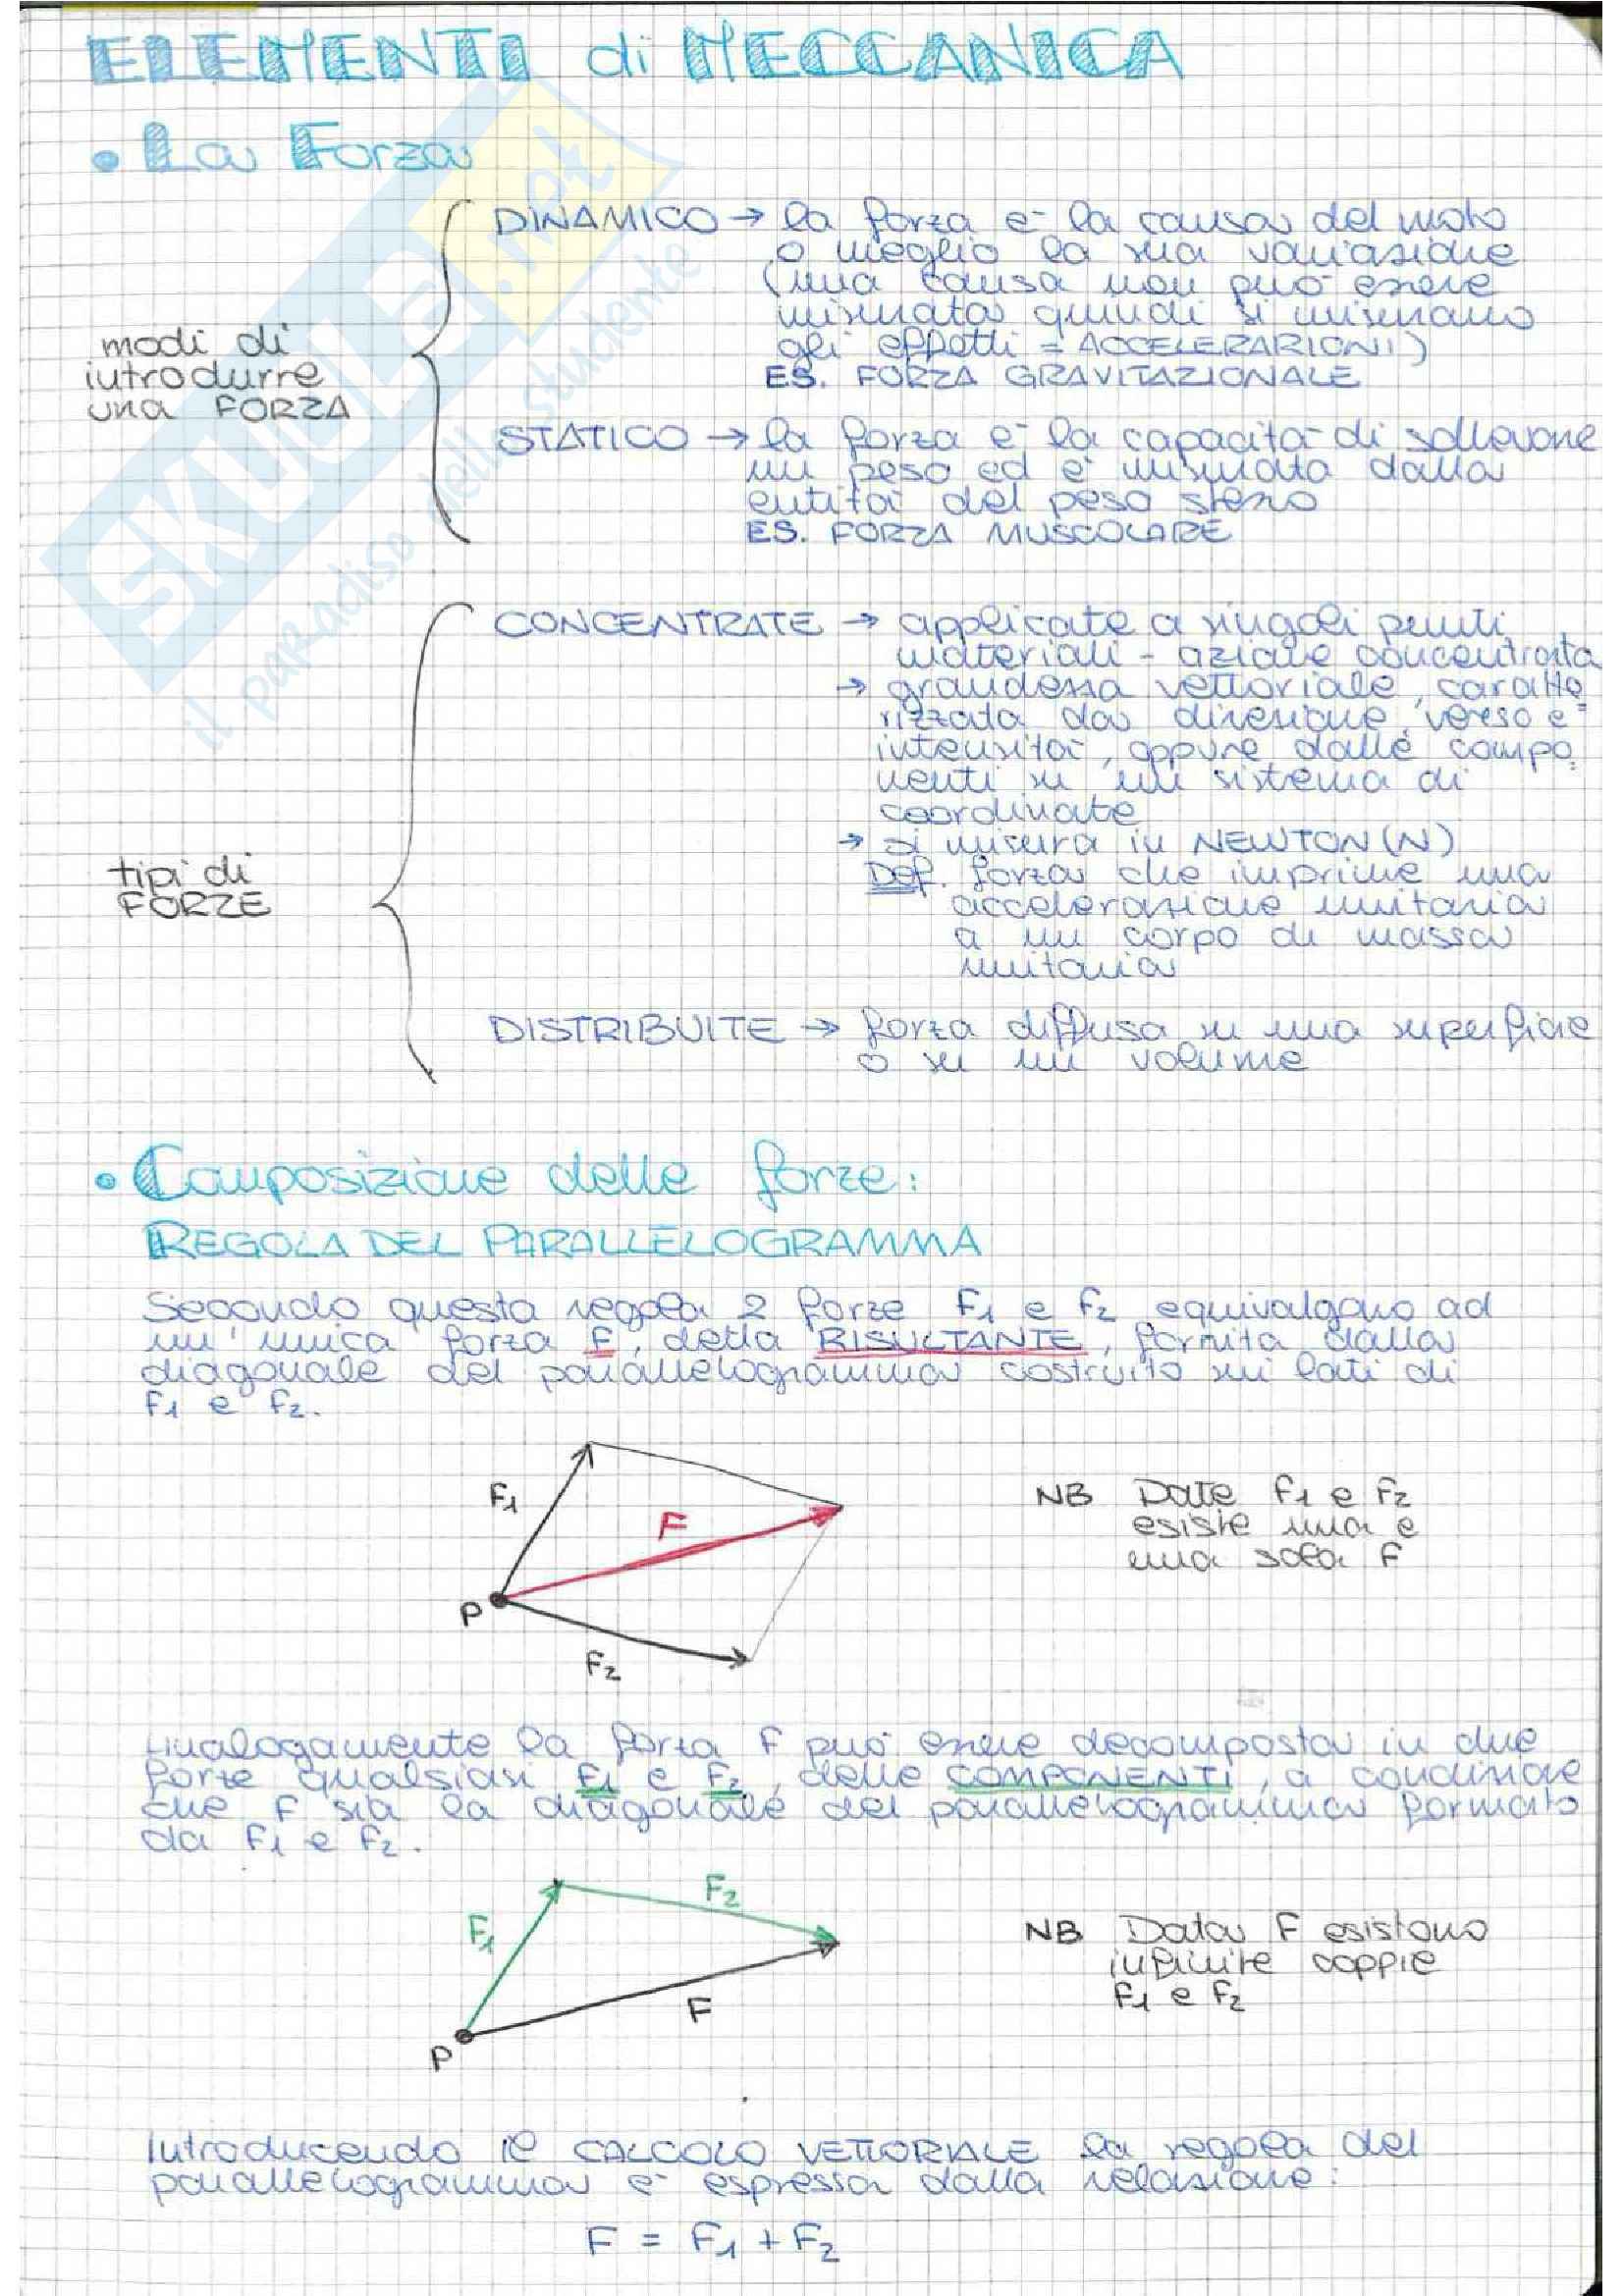 ELEMENTI di MECCANICA
• La Forza
modi di
introdurre
una FORZA
DINAMICO → la forza è la causa del moto
o meglio la sua variazione
(una causa non può essere
misurata quindi si misurano
gli effetti = ACCELERARIONI)
ES. FORZA GRAVITAZIONALE
STATICO → la forza è la capacità di sollevare
un peso ed è misurata dalla
entità del peso stesso
ES. FORZA MUSCOLARE
tipi di
FORZE
CONCENTRATE → applicate a singoli punti
materiali - azione concentrata
→ grandezza vettoriale, caratte
rizzata da direzione, verso e
intensità, oppure dalle compo
nenti su un sistema di
coordinate
→ si misura in NEWTON (N)
Def. forza che imprime una
accelerazione unitaria
a un corpo di massa
unitaria
DISTRIBUITE → forza diffusa su una superficie
o su un volume
• Composizione delle forze:
REGOLA DEL PARALLELOGRAMMA
Secondo questa regola 2 forze F1 e F2 equivalgono ad
un'unica forza F, detta RISULTANTE, fornita dalla
diagonale del parallelogramma costruito sui lati di
F1 e F2.
F1
F
P
F2
NB Date F1 e F2
esiste una e
una sola F
Analogamente la forza F può essere decomposta in due
forze qualsiasi F1 e F2, dette COMPONENTI, a condizione
che F sia la diagonale del parallelogramma formato
da F1 e F2.
F2
F1
F
P
NB Data F esistono
infinite coppie
F1 e F2
Introducendo il CALCOLO VETTORIALE la regola del
parallelogramma è espressa dalla relazione:
F = F1 + F2
SKUOLA.net
il paradiso dello studente